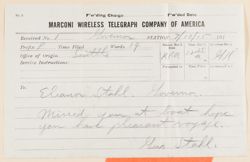 No. 1
F'w'ding Charge
F'w'ded Date
MARCONI WIRELESS TELEGRAPH COMPANY OF AMERICA
Received No. 1 Governor STATION
Prefix Time Filed Words 19
Office of Origin Seattle
Service Instructions:
To:
Eleanor Stahl. Governor.
Missed you at boat hope
you have pleasant voyage.
Geo Stahl.